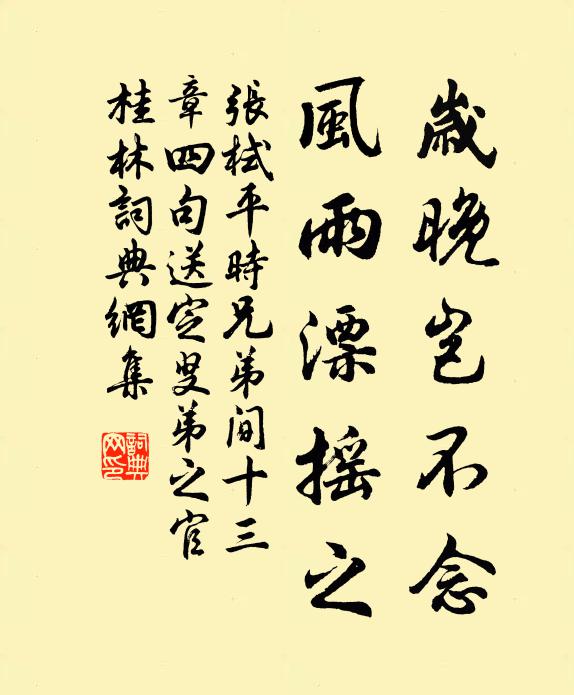 歲晚豈不念
風雨漂搖之
張栻平時兄弟間十三
章四句送定叟弟之官
桂林詞典網集
詞典網印